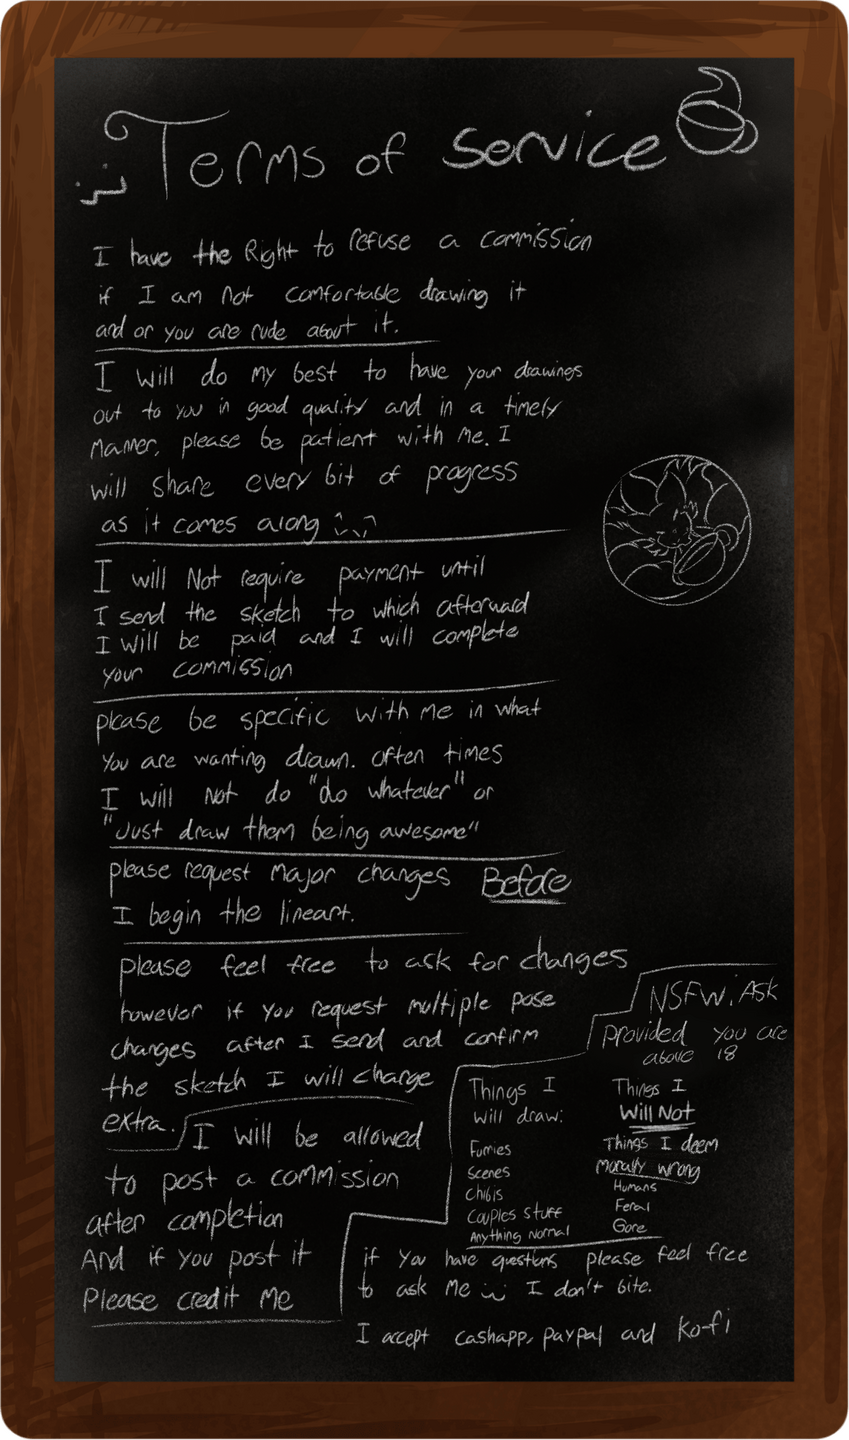 Terms of Service
I have the Right to refuse a commission
if I am not comfortable drawing it
and or you are rude about it.
I will do my best to have your drawings
out to you in good quality and in a timely
Manner, please be patient with me. I
will share every bit of progress
as it comes along
I will Not require payment until
I send the sketch to which afterward
I will be paid and I will complete
your commission
please be specific with me in what
You are wanting drawn. often times
I will not do "do whatever" or
"Just draw them being awesome"
please request Major changes Before
I begin the lineart.
please feel free to ask for changes
however if you request multiple pose
changes after I send and confirm
the sketch I will charge
extra.
I will be allowed
to post a commission
after completion
And if you post it
Please credit Me
NSFW: Ask
provided you are
above 18
Things I
will draw:
Furries
Scenes
Chibis
Couples stuff
Anything Normal
Things I
Will Not
Things I deem
Morally wrong
Humans
Feral
Gore
if You have questions please feel free
to ask Me I don't bite.
I accept cashapp, paypal and ko-fi